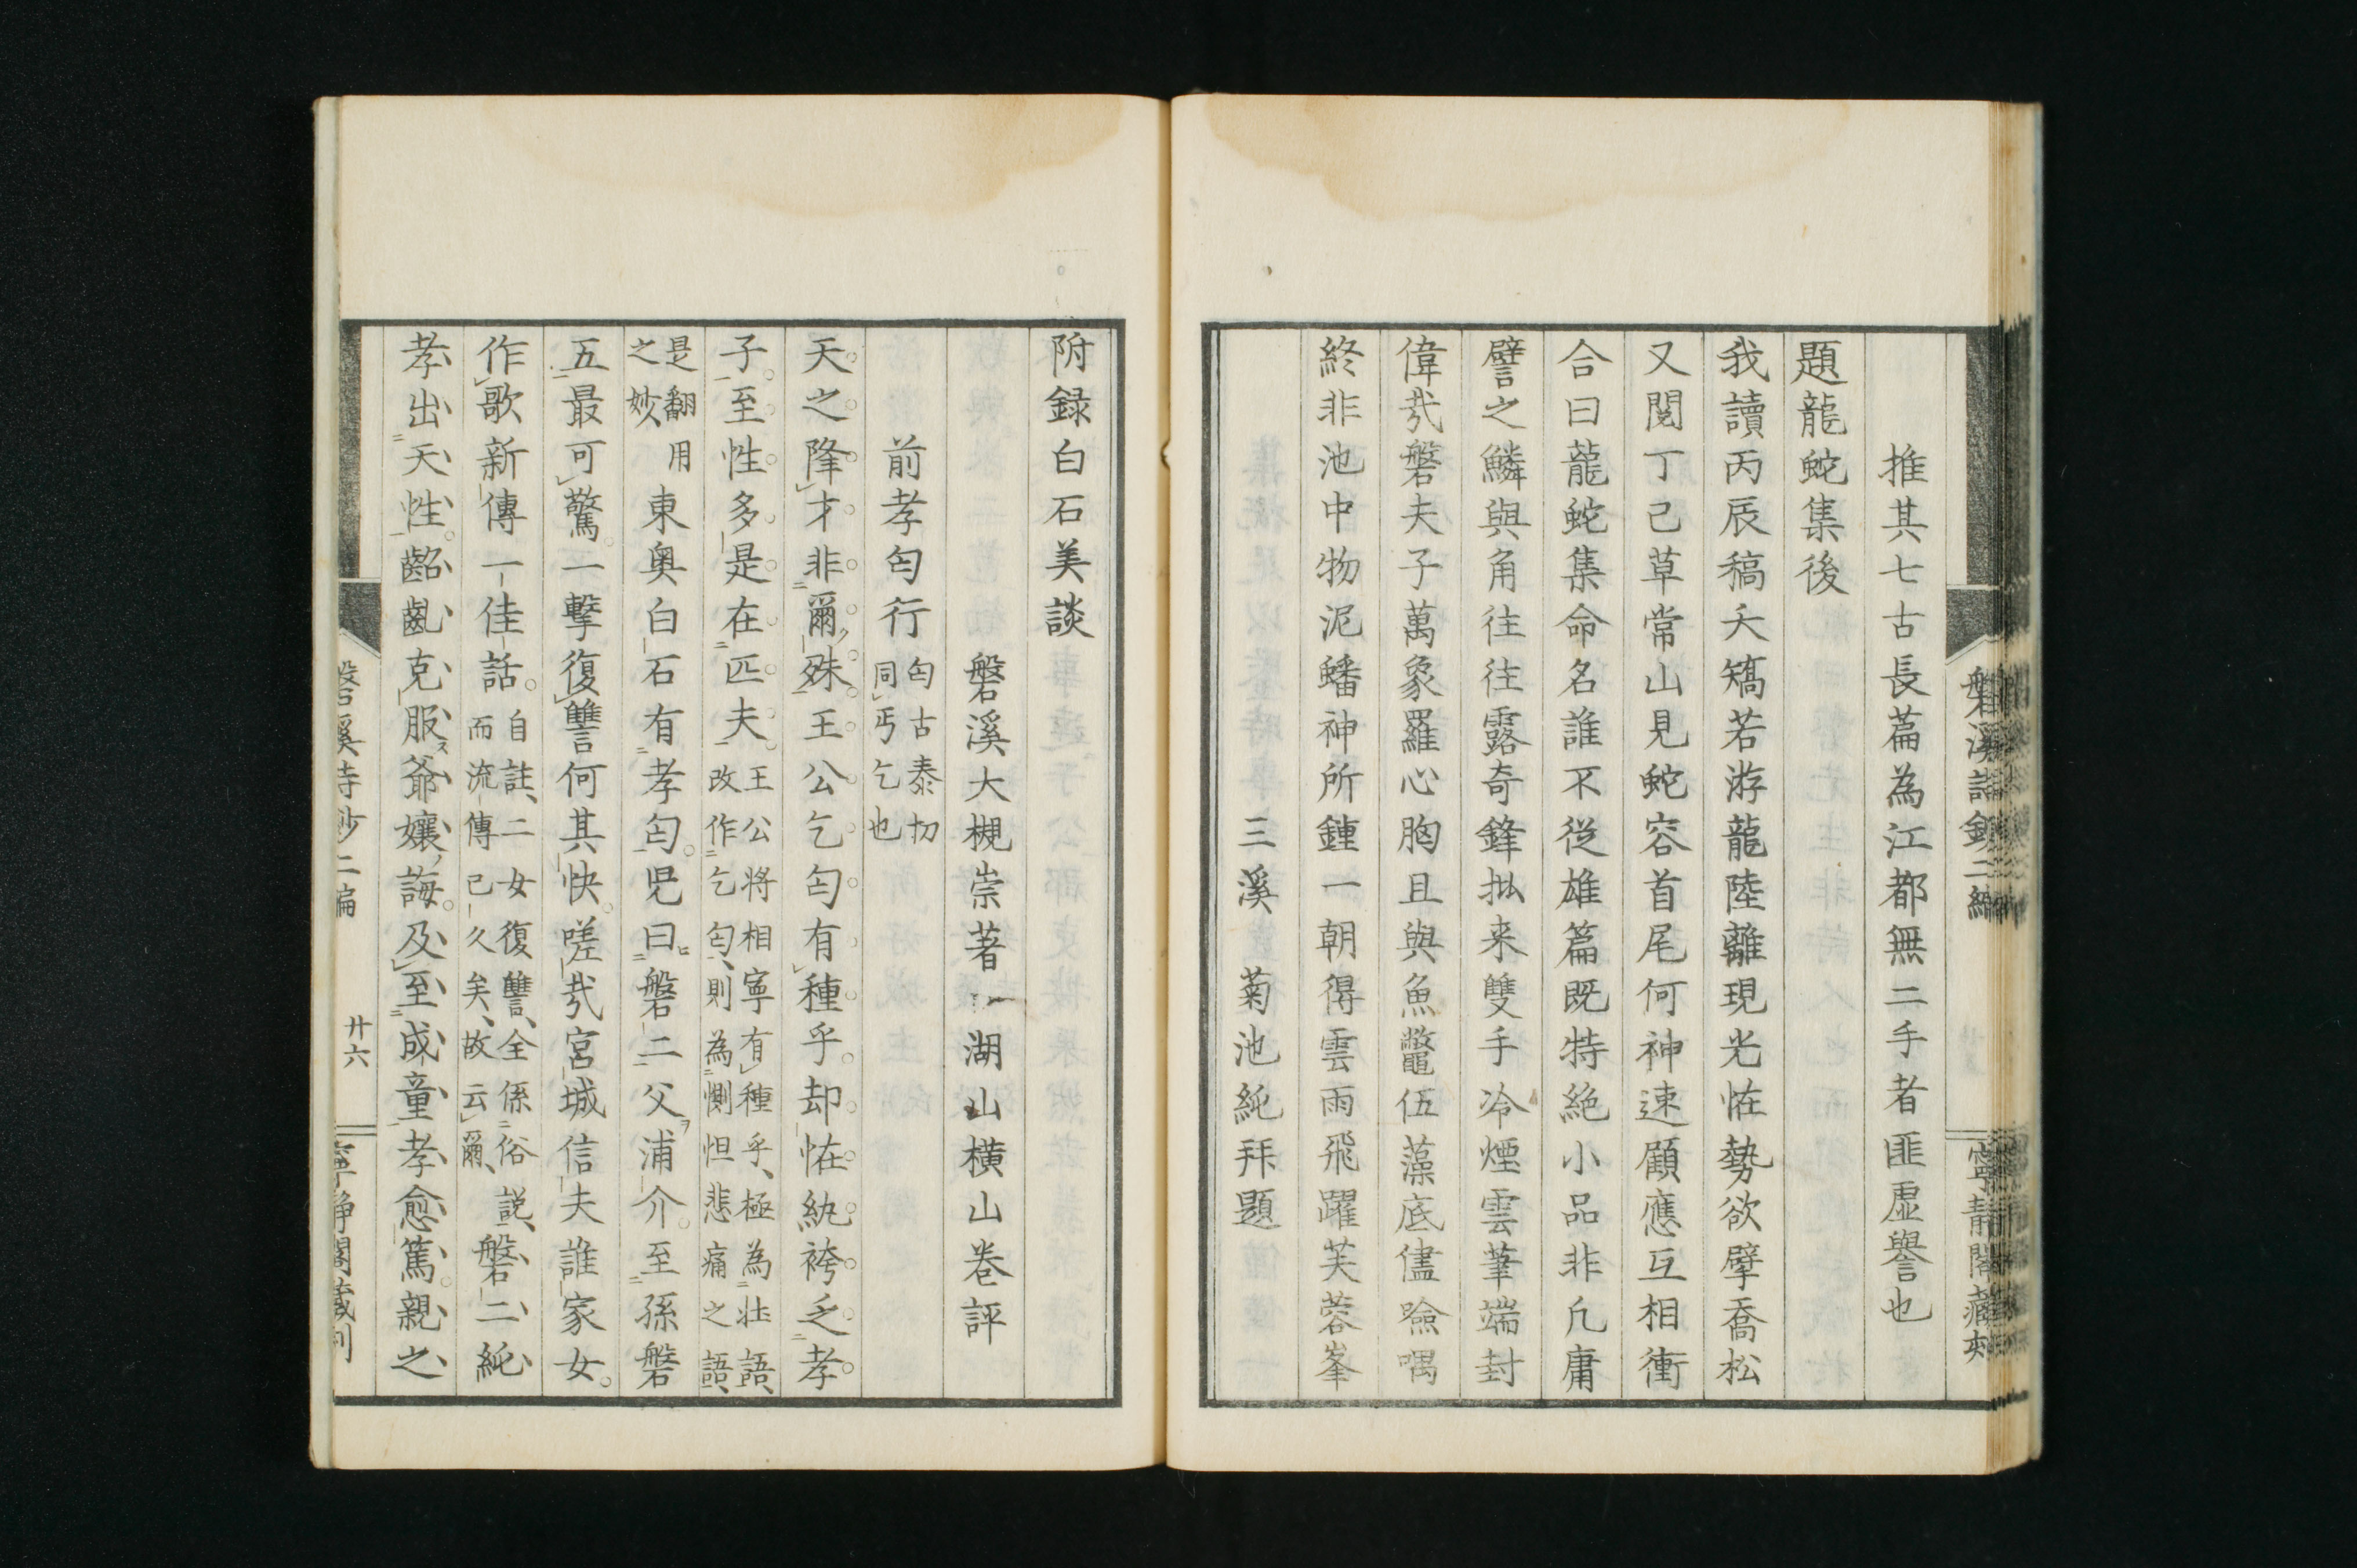 推其七古長篇為江都無二手者匪虛譽也
題龍蛇集後
我讀丙辰稿夭矯若游龍陸離現光恠勢欲擘喬松
又閱丁巳草常山見蛇容首尾何神速顧應互相衝
合曰龍蛇集命名誰不從雄篇既特絶小品非凡庸
譬之鱗與角往往露奇鋒拟来雙手冷煙雲筆端封
偉哉磐夫子萬象羅心胸且與魚鼈伍藻底儘噞喁
終非池中物泥蟠神所鍾一朝得雲雨飛躍芙蓉峯
三溪　菊池純拜題
附録白石美談
磐溪大槻崇著　湖山横山卷評
前孝匄行　匄古泰㧅
同丐乞也
天之降才非爾殊王公乞匄有種乎却恠紈袴乏孝
子至性多是在匹夫　王公將相寧有種乎、極為壯語、
改作乞匄、則為惻怛悲痛之語、
是翻用
之妙、
東奥白石有孝匄児曰磐二父浦介至孫磐
五最可驚一擊復讐何其快嗟哉宮城信夫誰家女
作歌新傳一佳話　自註、二女復讐、全係俗説、
而流傳已久矣、故云爾、
磐二純
孝出天性齠齔克服爺孃誨及至成童孝愈篤親之
磐溪詩鈔二編　廿六　寧静閣藏刊